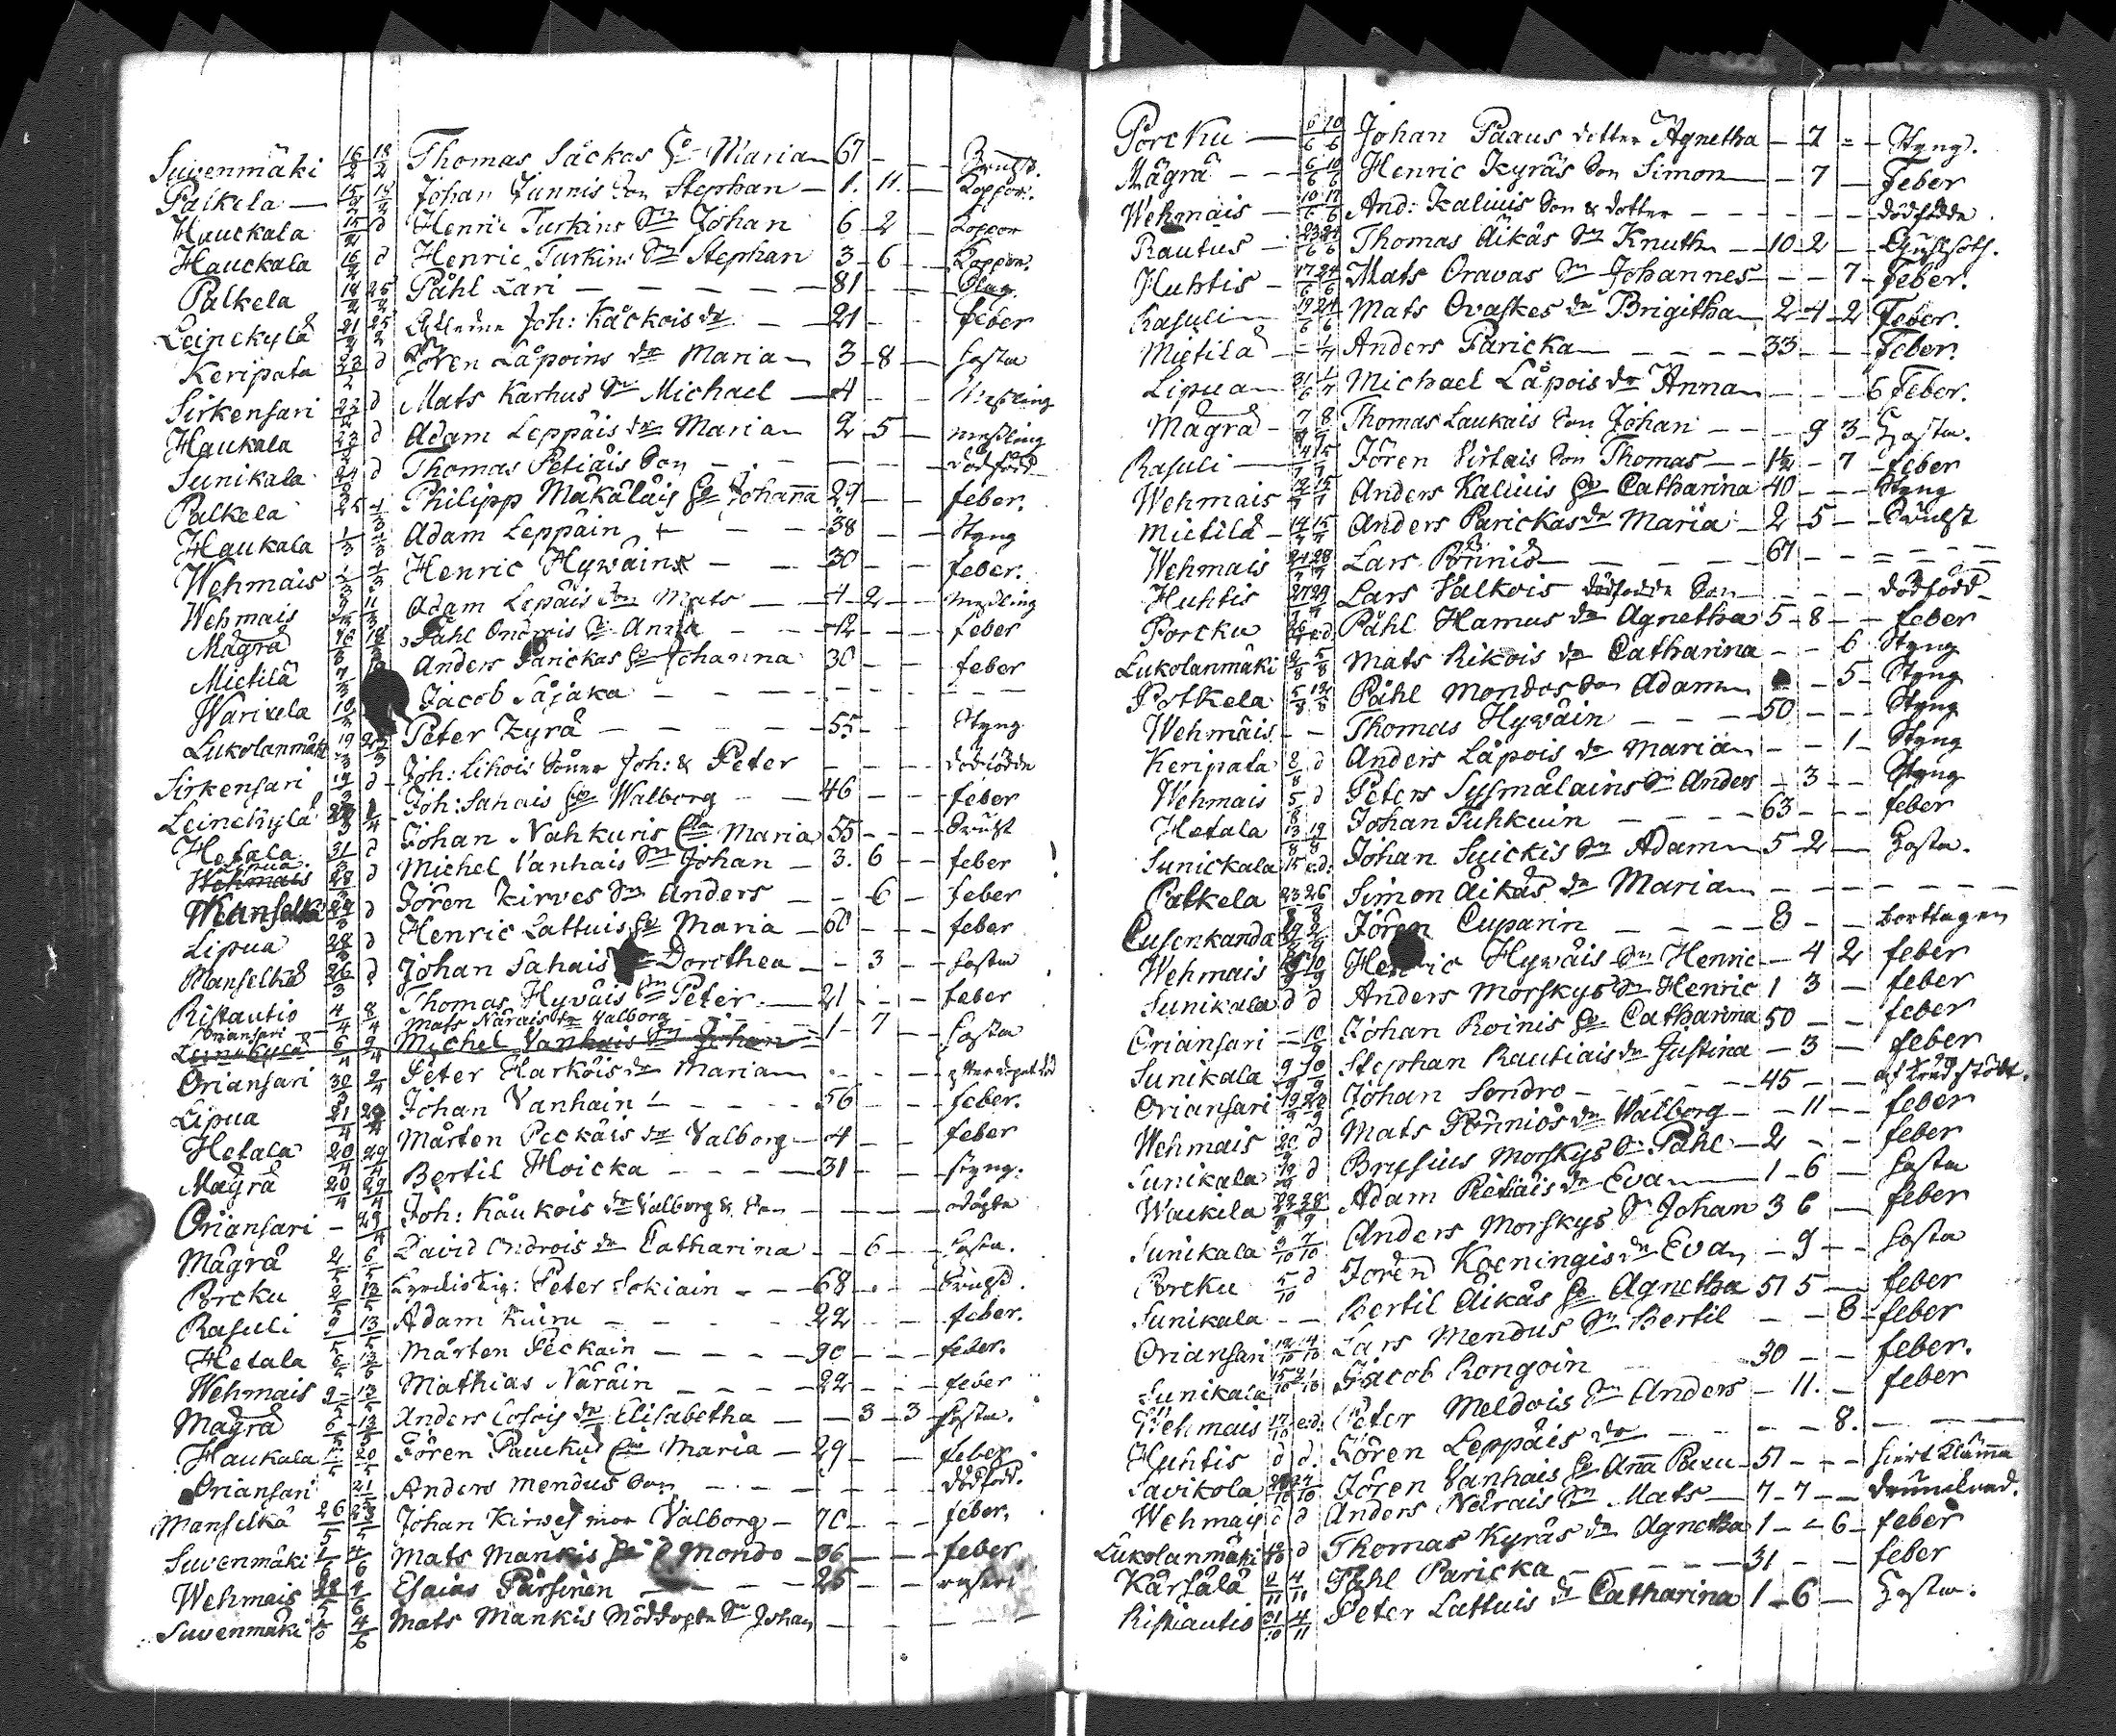 Suvenmäki 16/2 18/2 Thomas Säckas Maria 67 - - -
Palkela 15/2 18/2 Johan Junnis Son Stephan - 1. 11. - Koppor.
Hauckala 15/2 d Henric Turkins Sn Johan 6 - 2 - Koppor
Hauckala 16/2 d Henric Turkins Sn Stephan 3 - 6 - Koppor.
Palkela 18/2 25/2 Påhl Lari - 81 - -
Leinckylä 21/2 25/2 Joh: Käckois dr - 21 - - feber
Keripata 23/2 d Jören Läpoins dr Maria 3 - 8 - hosta
Sirkensari 22/2 d Mats Karhus Sn Michael - 4 - - Meßling
Haukala 23/2 d Adam Leppäis dr Maria 2 - 5 - meßling
Sunikala 24/2 d Thomas Petiäis Son - - - dödfödd
Palkela 25 1/3 Philipp Mäkäläis Johanna 29 - - feber.
Haukala 1/3 1/3 Adam Leppäin - 38 - - Styng
Wehmais 1/3 1/3 Henric Hywäin - 30 - - feber.
Wehmais 9/3 11/3 Adam Lepäis Son Mats - 4 - 2 - meßling
Mägrä 16/3 18/3 Påhl Ondrois Anna - 12 - - feber
Mietilä 7/3 Anders Parickas Johanna 30 - - feber
Warikela 18/3 Jacob Säjäkä - - - -
Lukolanmäki 19/3 25/3 Peter Kyrä - 55 - - Styng
Sirkensari 19/3 d Joh: Likois Söner Joh: & Peter - - - dödfödde
Leinckylä 1/4 Joh: Sahais Walborg - 46 - - feber
Hetala 31/3 d Johan Nahkuris Maria 55 - - - Svulst
Lipua 28/3 d Michel Vanhais Sn Johan - 3. 6 - - feber
Wanselkä 29/3 d Jören Kirves Sn Anders - - 6 - feber
Lipua 28/3 d Henric Lattuis Maria - 60 - - - feber
Manselkä 26/3 d Johan Sahais Dorothea - - 3 - - hosta
Ristautio 4/4 8/4 Thomas Hyväis Peter - 21 - - - feber
Oriansari Mats Näräis dr Valborg
Leinckylä 6/4 9/4 Michel Vanhais Sn Johan - 1 - 7 - - hosta
Oriansari 30/3 9/4 Peter Harköis dr Maria - - -
Lipua 21/4 29/4 Johan Vanhain - 56 - - feber.
Hetala 20/4 29/4 Mårten Peckäis dr Valborg - 4 - - feber
Mägrä 20/4 29/4 Bertil Hoicka - 31 - - styng.
Oriansari - 29/4 Joh: Käukois dr Valborg & Son - - - odöpta
Mägrä 2/5 6/5 David Ondrois dr Catharina - - 6 - - hosta.
Porcku 2/5 13/5 Peter Sokiain - 68 - - Svulst.
Rasuli 9/5 13/5 Adam Kuiru - 22 - - feber.
Hetala 6/5 13/5 Mårten Peckain - 90 - - feber.
Wehmais 9/5 13/5 Mathias Näräin - 22 - - feber
Mägrä 6/5 13/5 Anders Cosois dr Elisabetha - - 3 - 3 - hosta.
Haukala 20/5 Jören Paucku Maria - 29 - - feber
Oriansari 21/5 Anders Mendus Son - - - dödfödd.
Manselkä 26/5 Johan Kirwes mor Valborg - 70 - - feber.
Suvenmäki 1/6 4/6 Mats Mankis Mondo - 36 - - feber
Wehmais 28/5 4/6 Esaias Pärsinen - 25 - -
Suvenmäki 4/6 Mats Mankis Nöddöpte Sn Johan - - -
Porcku - 6/6 10/6 Johan Paaus dotter Agnetha - 7 - - Styng.
Mägrä - - 6/6 10/6 Henric Kyräs Son Simon - - 7 - Feber
Wehmais - 10/6 17/6 And: Kaliuis Son & dotter - - - dödfödde.
Rautus - 23/6 24/6 Thomas Äikäs Sn Knuth - 10 - 2 -
Huhtis - 17/6 24/6 Mats Oravas Sn Johannes - - 7 - feber.
Rasuli - 19/6 24/6 Mats Ovaskes dr Brigitha - 2 - 4 - 2 Feber.
Mietilä - - 1/7 Anders Paricka - 33 - - Feber.
Lipua - 31/6 1/7 Michael Läpois dr Anna - - - 6 Feber.
Mägrä - 7/7 8/7 Thomas Laukais Son Johan - - 9 3 - Hosta.
Rasuli - 4/7 15/7 Jören Virtais Son Thomas - 12 - 7 - feber
Wehmais 12/7 15/7 Anders Kaliuis Catharina 40 - - - Styng
Mietilä - 14/7 15/7 Anders Parickas dr Maria - 2 - 5 - - Svulst
Wehmais 24/7 28/7 Lars - 67 - - - -
Huhtis 27/7 29/7 Lars Valkois dödfödde Son - - - dödfödd
Porcku Påhl Hamus dr Agnetha 5 - 8 - - feber
Lukolanmäki 2/8 5/8 Mats Rikois dr Catharina - - 6 Styng
Potkela 5/8 12/8 Påhl Mondos Son Adam - - 5 - Styng
Wehmäis - - Thomas Hywäin - 50 - - - Styng
Keripata 8/8 d Anders Läpois dr Maria - - 1 - Styng
Wehmais 5/8 d Peters Sysmäläins Sn Anders - 3 - - Styng
Hetala 13/8 19/8 Johan Tuhkuin - 63 - - - feber
Sunickala 15 e.d. Johan Suickis Sn Adam - 5 - 2 - Hosta.
Palkela 23/8 26/8 Simon Äikäs dr Maria - - - -
Cusenkanda 2/9 Jören Cuparin - 8 - - borttagen
Wehmais 10/9 Henric Hywäis Sn Henric - 4 2 feber
Sunikala d d Anders Morskys Sn Henric 1 3 - feber
Oriansari - 10/9 Johan Roinis Catharina 50 - - feber
Sunikala 9/9 10/9 Stephan Rautiais dr Justina - 3 - feber
Oriansari 19/9 20/9 Johan Sondro - 45 - -
Wehmais 20/9 d Mats Pönniös dr Walborg - - 11 - - feber
Sunikala 19/9 d Brusius Morskys Sn Påhl - 2 - - feber
Waikila 22/9 28/9 Adam Petiäis dr Eva - 1 - 6 - hosta
Sunikala 9/10 7/10 Anders Morskys Sn Johan 3 6 - feber
Porcku 5/10 d Jören Koeningis dr Eva - 9 - - hosta
Sunikala - - Bertil Äikäs Agnetha 51 5 - feber
Oriansari 12/10 14/10 Lars Mendus Sn Bertil - - 8 - feber
Sunikala 15/10 21/10 Jacob Rongoin 30 - - feber.
Wehmais 17/10 e.d. Peter Meldois Sn Anders - 11. - feber
Huhtis d d. Jören Leppäis dr - - - 8. - - -
Savikola 24/10 Jören Vanhais Anna - 51 - - -
Wehmais d d Anders Närais Sn Mats - 7 - 7 - -
Lukolanmäki d Thomas Kyräs dr Agnetha 1 - - 6 - feber
Kärsälä 2/11 4/11 Påhl Paricka - 31 - - feber
Ristiautio 31/10 4/11 Peter Lattuis dr Catharina 1 - 6 - Hosta.